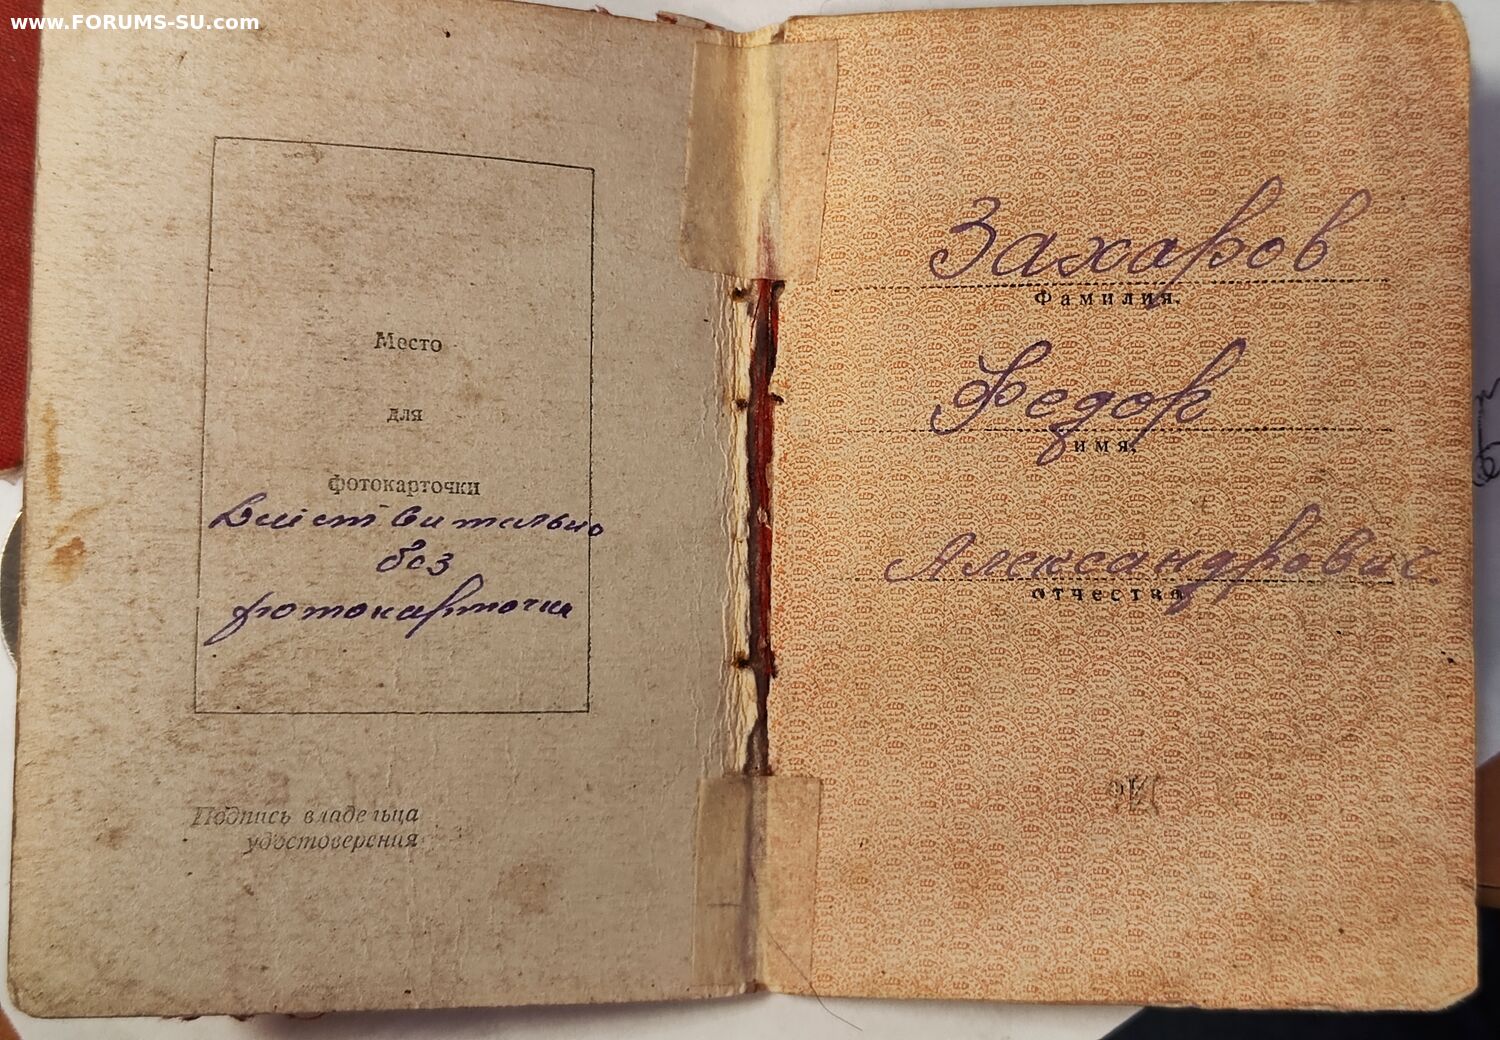 www.FORUMS-SU.com
Место
для
фотокарточки
Действительно
без
фотокарточки
Подпись владельца
удостоверения
Захаров
Фамилия,
Федор
имя,
Александрович.
отчество